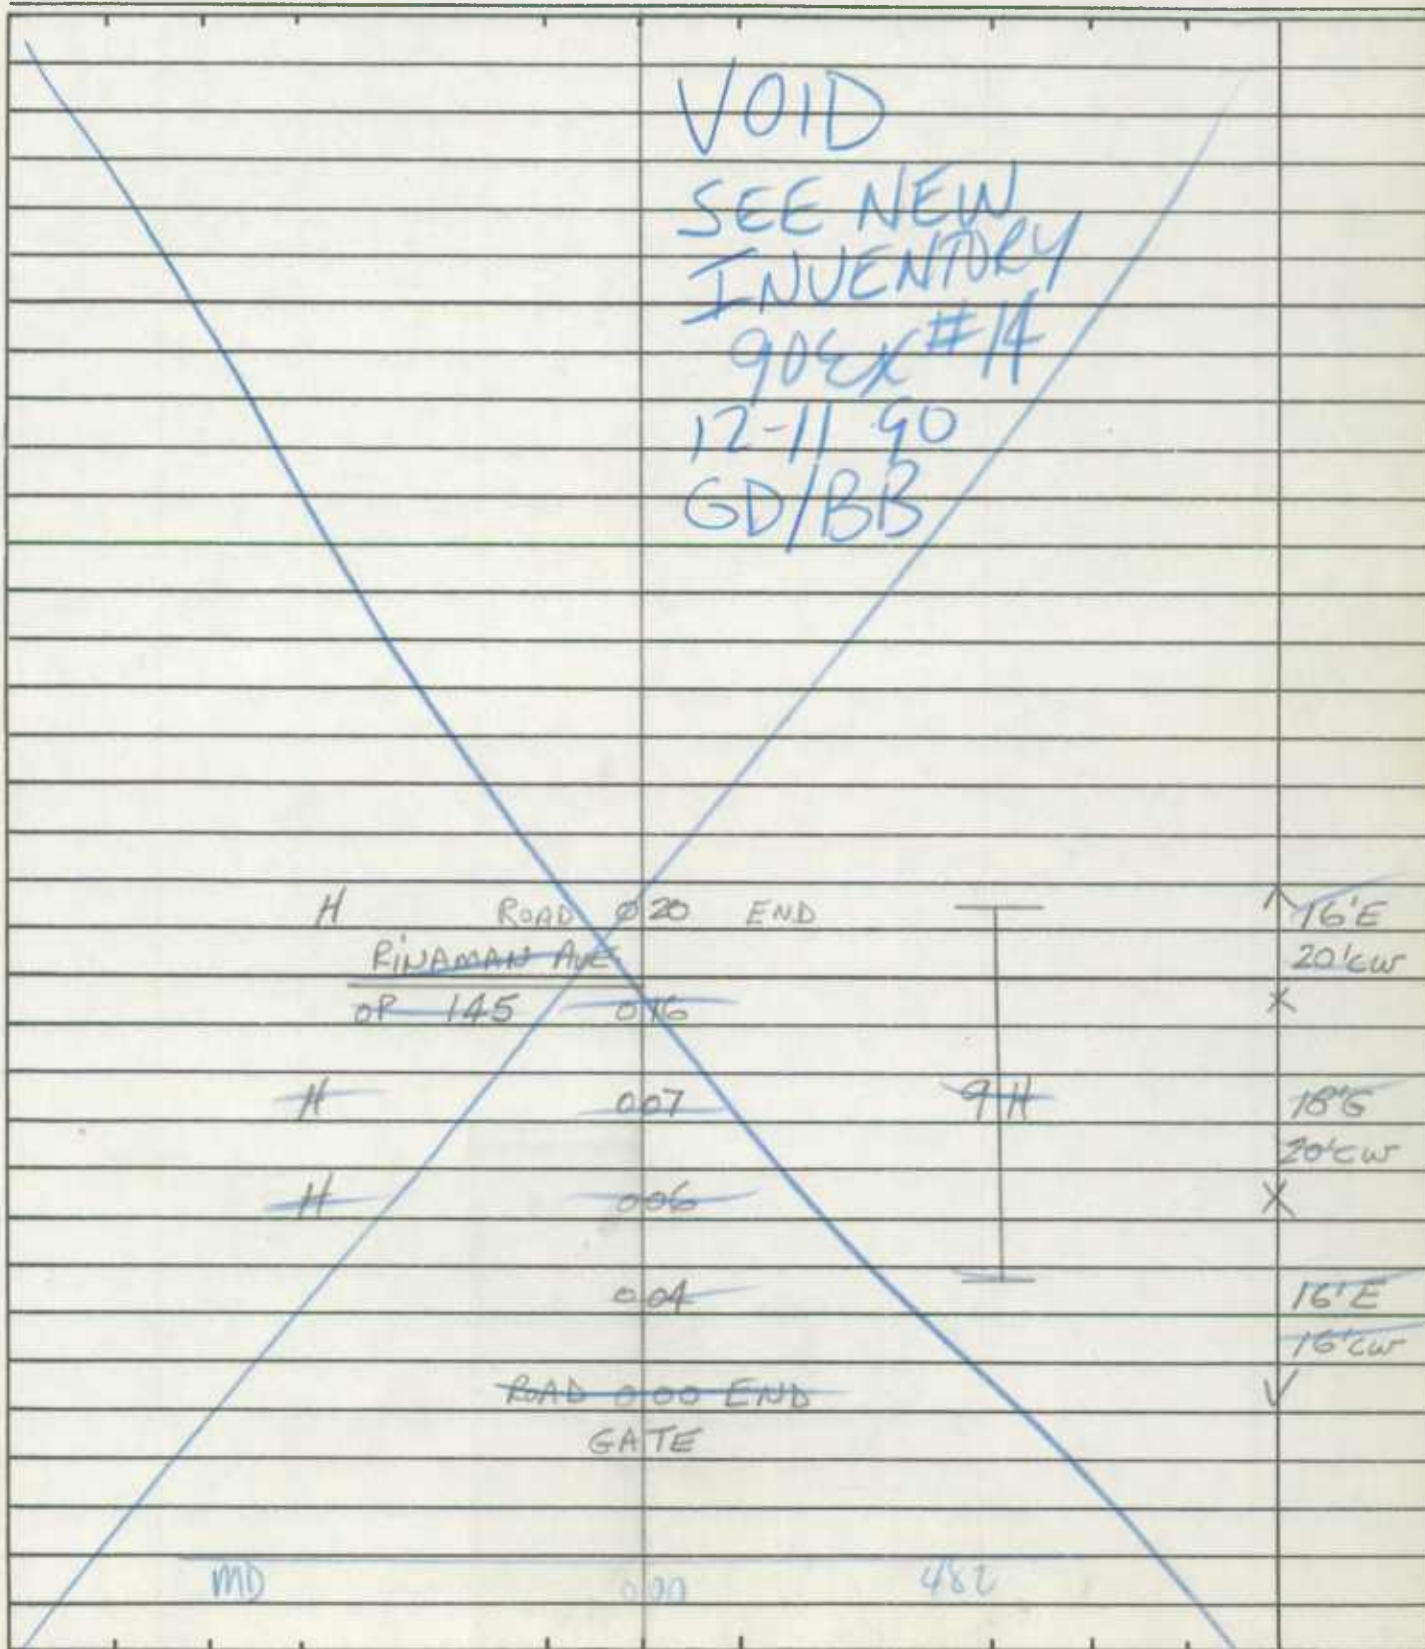 VOID
SEE NEW
INVENTORY
90EX #14
12-11 90
GD/BB
H ROAD 0 20 END 16'E
RINAMAN AVE 20'CW
OP 145 016 X
H 007 9H 18'G
20'CW
H 006 X
004 16'E
16'CW
ROAD 0 00 END
GATE
MD 0.00 482